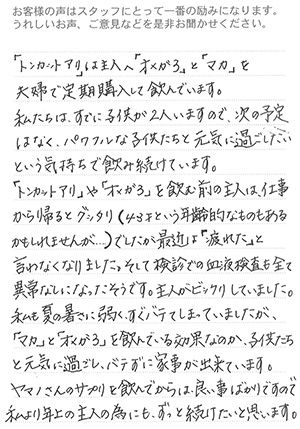 お客様の声はスタッフにとって一番の励みになります。
うれしいお声、ご意見などを是非お聞かせください。
「トンカットアリ」は主人へ「オメガ3」と「マカ」を
夫婦で定期購入して飲んでいます。
私たちは、すでに子供が2人いますので、次の予定
はなく、パワフルな子供たちと元気に過ごしたい
という気持ちで飲み続けています。
「トンカットアリ」や「オメガ3」を飲む前の主人は、仕事
から帰るとグッタリ(43才という年齢的なものもある
かもしれませんが…)でしたが最近は「疲れた」と
言わなくなりました。そして検診での血液検査も全て
異常なしになったそうです。主人がビックリしていました。
私も夏の暑さに弱く、すぐバテてしまっていましたが、
「マカ」と「オメガ3」を飲んでいる効果なのか、子供たち
と元気に過ごし、バテずに家事が出来ています。
ヤマノさんのサプリを飲んでからは、良い事ばかりですので
私より年上の主人の為にも、ずっと続けたいと思います。